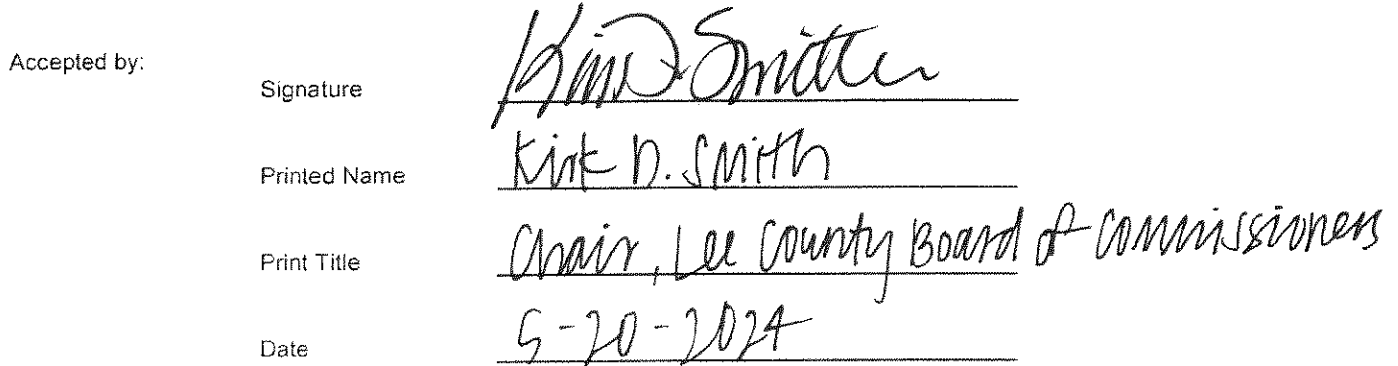 Accepted by:
Signature Kirk D. Smith
Printed Name Kirk D. Smith
Print Title Chair, Lee County Board of Commissioners
Date 5-20-2024